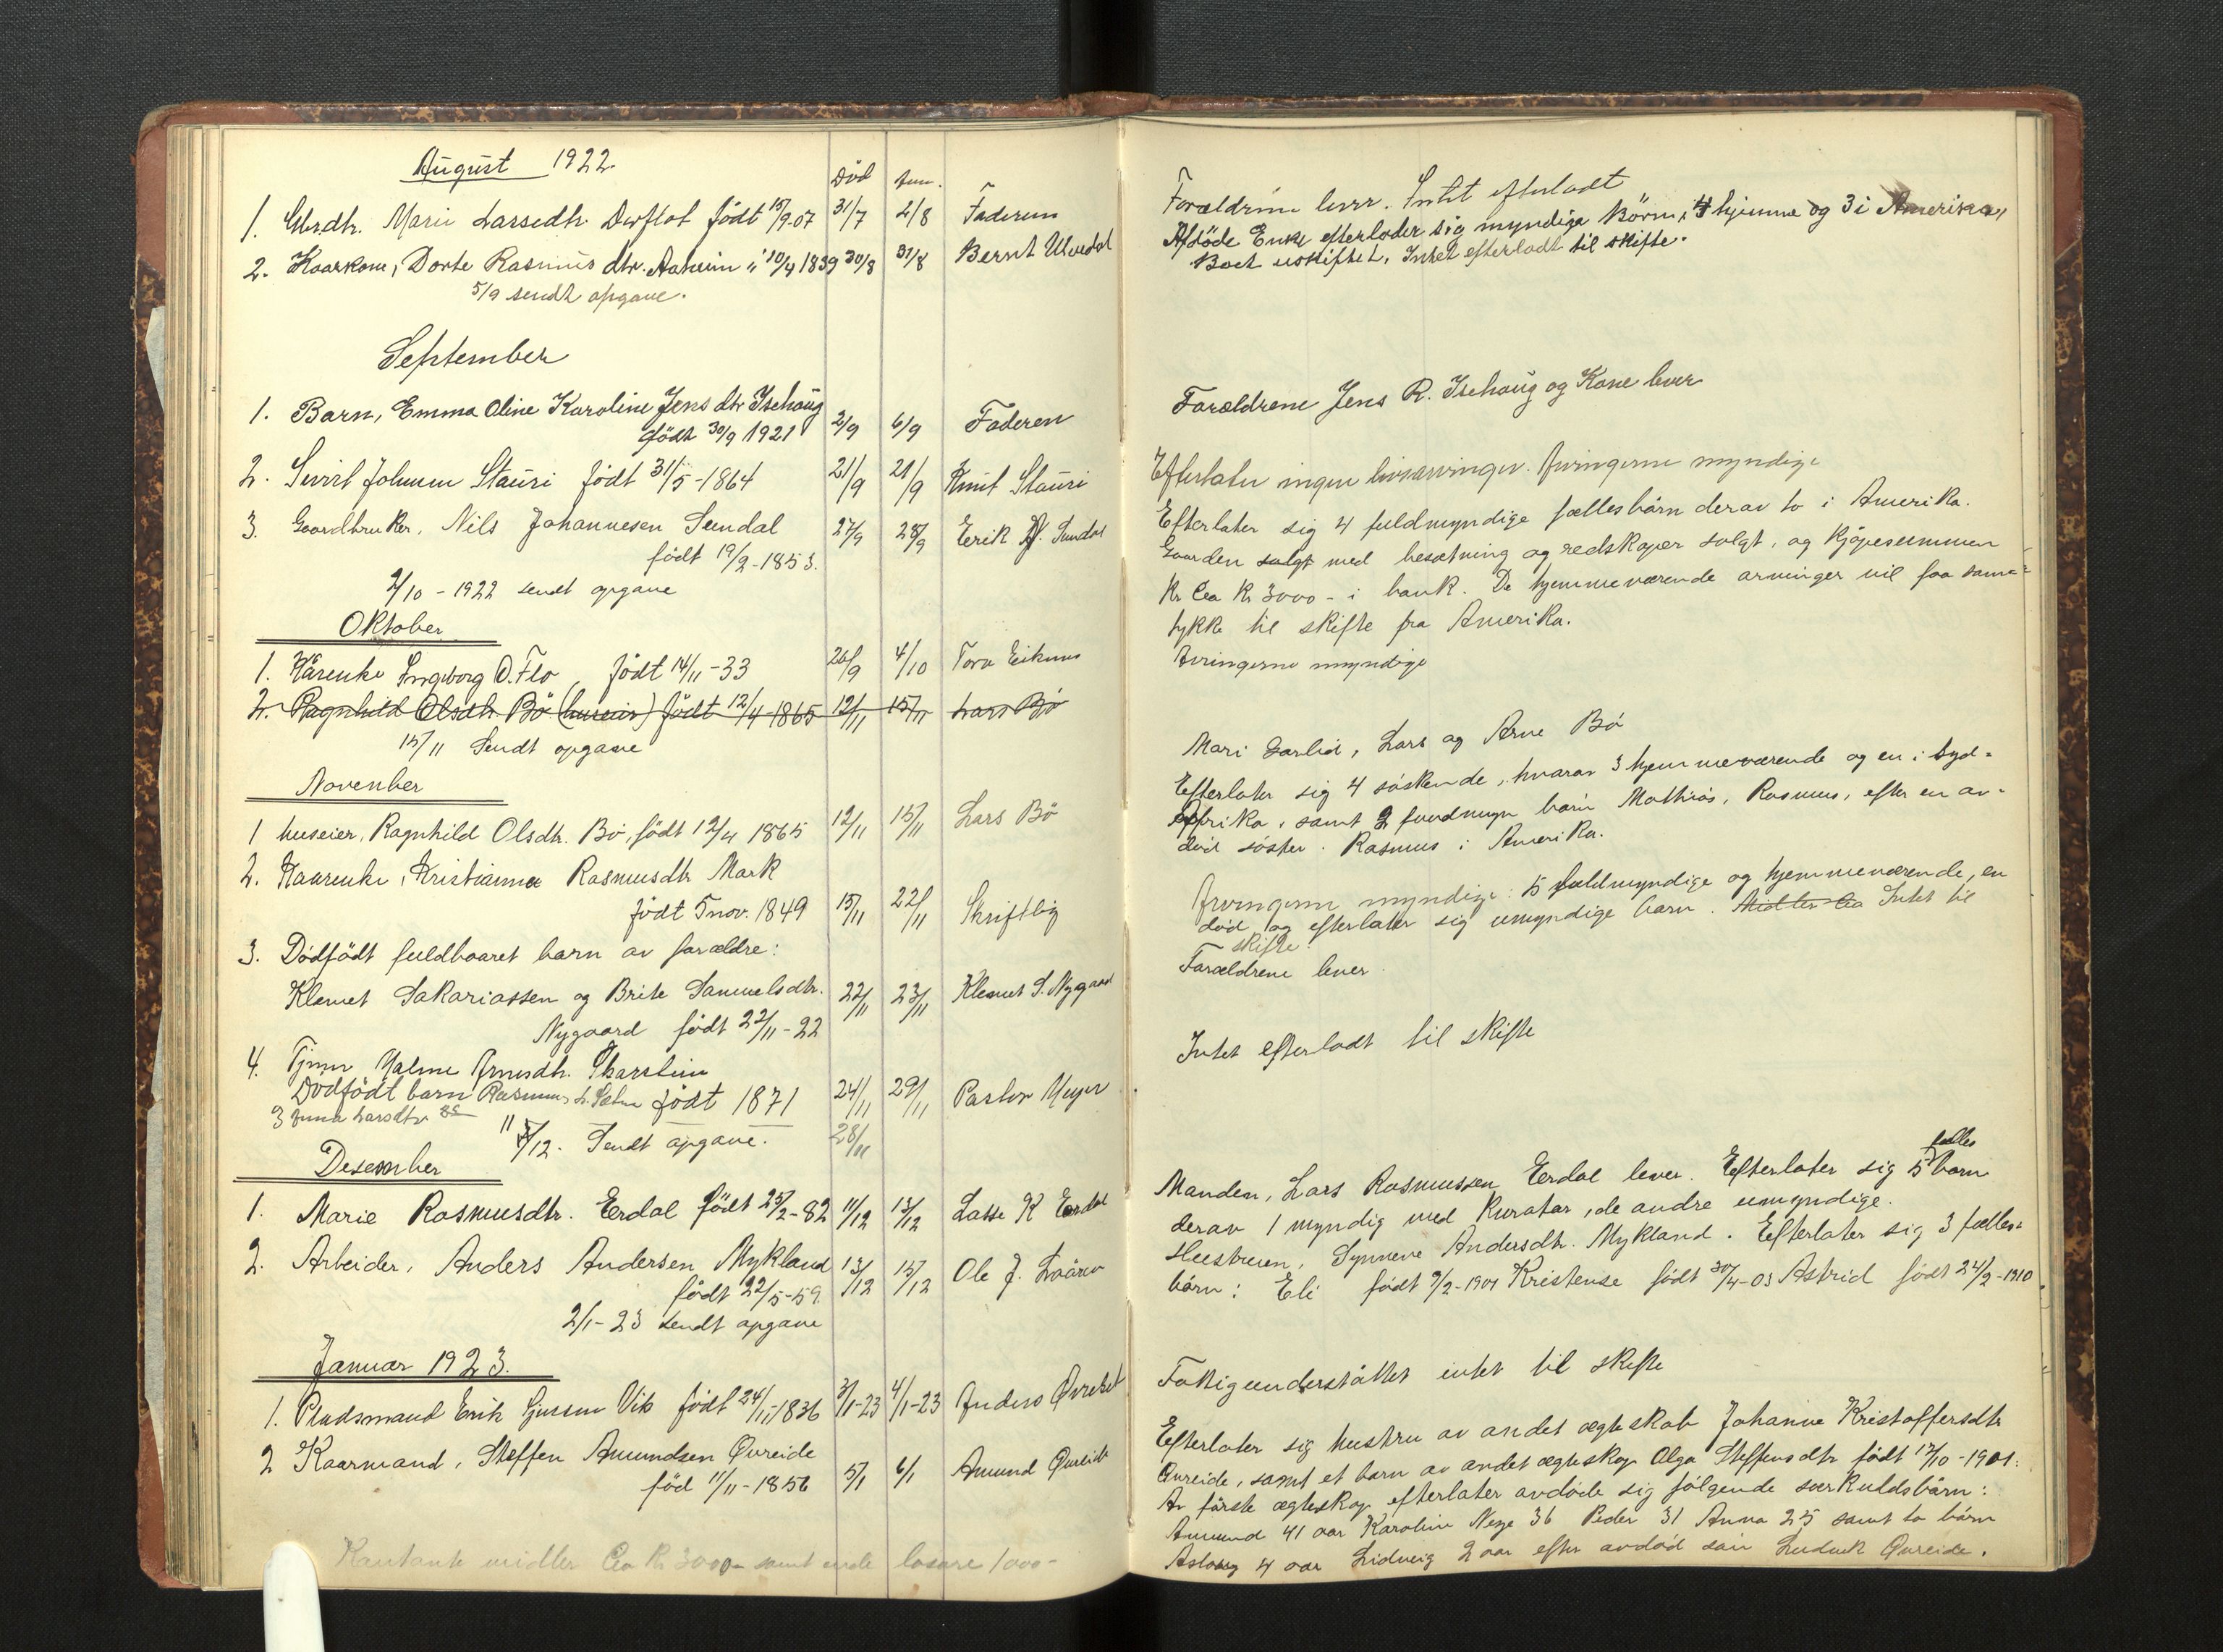 August 1922
Død
1. Marie Larsedtr. født 15/9-07 31/7 2/8 Faderen
2. Kaarkone, Dorte Rasmus dtr. Aaheim " 10/4 1839 30/8 31/8 Bernt
5/9 sendt opgave.
September
1. Barn, Emma Oline Karoline Jens dtr Isehaug
født 30/9 1921 2/9 6/9 Faderen
2. Sivert Johnsen Stauri født 31/5-1864 21/9 21/9 Knut Stauri
3. Gaardbruker, Nils Johannesen Sundal 27/9 28/9 Eerik N. Sundal
født 19/2-1853.
2/10-1922 sendt opgave
Oktober
1. Kårenke Ingeborg O. Flo, født 14/11-33 26/9 4/10 Tora
2. Ragnhild Olsdtr. Bö (huseier) født 12/4-1865 12/11 15/11 Lars Bö
15/11 Sendt opgave
November
1 huseier, Ragnhild Olsdtr. Bö, født 12/4 1865 12/11 15/11 Lars Bö
2. Kaarenke, Kristianna Rasmusdtr Mark
født 5 nov. 1849 15/11 22/11 Skriftlig
3. Dödfödt fuldbaaret barn av forældre:
Klemet Sakariassen og Brite Samuelsdtr. 22/11 23/11 Klemet S. Nygaard
Nygaard født 22/11-22
4. Skarstein
Dödfödt barn Rasmus født 1871 24/11 29/11 Pastor Meyer
3 Larsdtr
5/12. Sendt opgave. 28/11
Desember
1. Marie Rasmusdtr. Eerdal født 25/2-82 11/12 13/12 Lasse R Eerdal
2. Arbeider, Anders Andersen Mykland 13/12 15/12 Ole J.
født 22/5-59.
2/1-23 sendt opgave
Januar 1923.
1. Pladsmand Erik Vik født 24/11-1836 3/1-23 4/1-23 Anders
2 Kaarmand, Steffen Amundsen Øvreide
fød 11/11-1856 5/1 6/1 Amund Øvreide
Kontante midler Cea Kr 3000- samt løsøre 1000-
Forældrene lever. Intet efterladt
Afdöde Enke efterlader sig myndige Börn, 4 hjemme og 3 i Amerika,
Boet uskiftet, Intet efterladt til skifte.
Forældrene Jens R. Isehaug og Kone lever
Efterlater ingen livsarvinger. Arvingerne myndige
Efterlater sig 4 fuldmyndige fællesbårn derav to i Amerika.
Gaarden solgt med besætning og redskaper solgt, og kjøpesummen
Kr. Cea Kr 3000- i bank. De hjemmeværende arvinger vil faa sam-
tykke til skifte fra Amerika.
Arvingerne myndige
Mari Garlid, Lars og Arne Bö
Efterlater sig 4 söskende, hvorav 3 hjemmeværende og en i Syd-
Afrika, samt 2 barn Mathias, Rasmus, efter en av-
död söster. Rasmus i Amerika.
Arvingerne myndige: 5 fuldmyndige og hjemmeværende, en
död, og efterlater sig umyndige barn. Intet til
skifte.
Forældrene lever.
Intet efterladt til skifte
Manden, Lars Rasmussen Eerdal lever. Efterlater sig 5 fælles barn
derav 1 myndig med Kurator, de andre umyndige.
Hustruen, Synneve Andersdtr. Mykland. Efterlater sig 3 fælles-
bårn: Eli født 9/2-1901 Kristense født 30/4-03 Astrid født 24/2-1910
Fattigunderståttet intet til skifte
Efterlater sig hustru av andet ægteskab Johanne Kristoffersdtr
Øvreide, samt et barn av andet ægteskap Olga Steffensdtr født 17/10-1901.
Av förste ægteskap efterlater avdöde sig fölgende særkuldsbårn:
Amund 41 aar Karoline 36 Peder 31 Anna 25 samt to bårn
Aslaug 4 aar Lidveig 2 aar efter avdöd sön Ludvik Øvreide.